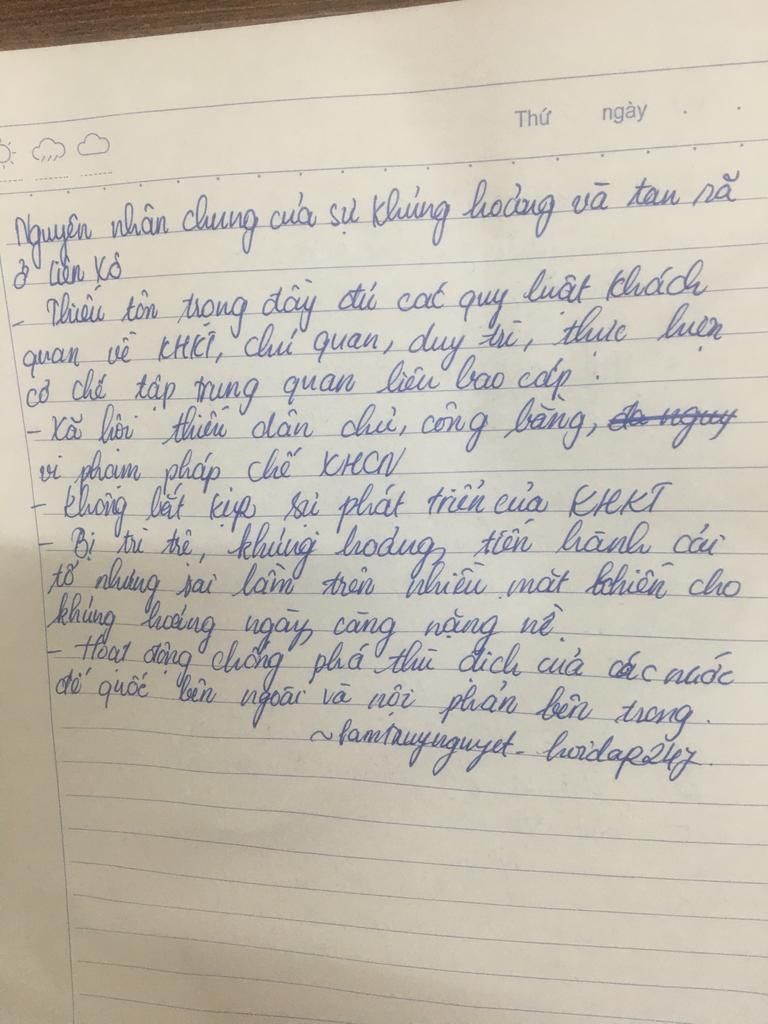 Thứ ngày
Nguyên nhân chung của sự khủng hoảng và tan rã
ở Liên Xô
- Thiếu tôn trọng đầy đủ các quy luật khách
quan về KHKT, chủ quan, duy trì, thực hiện
cơ chế tập trung quan liêu bao cấp.
- Xã hội thiếu dân chủ, công bằng,
vi phạm pháp chế XHCN
- Không bắt kịp sự phát triển của KHKT
- Bị trì trệ, khủng hoảng, tiến hành cải
tổ nhưng sai lầm trên nhiều mặt khiến cho
khủng hoảng ngày càng nặng nề.
- Hoạt động chống phá thù địch của các nước
đế quốc bên ngoài và nội phản bên trong.
~lamtuynguyet - hoidap247